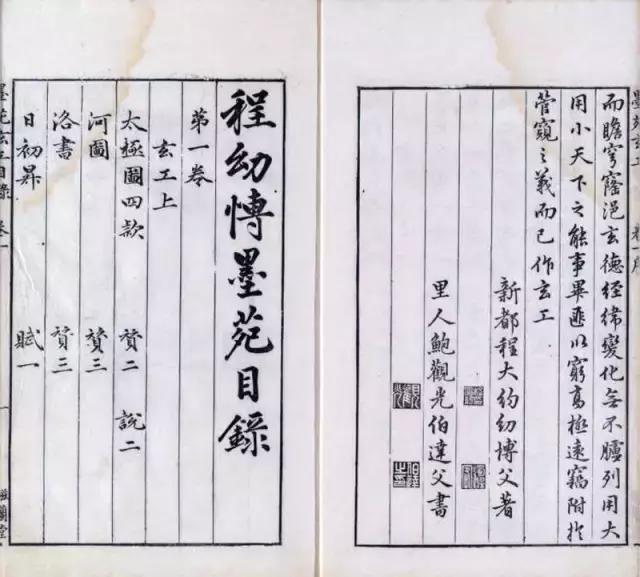 而瞻穹窿浥玄德經緯變化無不臚列用大
用小天下之能事畢匪以窮高極遠竊附於
管窺之義而已作玄工
新都程大約幼博父著
里人鮑觀光伯達父書
程幼博墨苑目錄
第一卷
玄工上
太極圖四款 贊二 說二
河圖 贊三
洛書 贊三
日初昇 賦一
墨苑玄工目錄 卷一 一 滋蘭堂